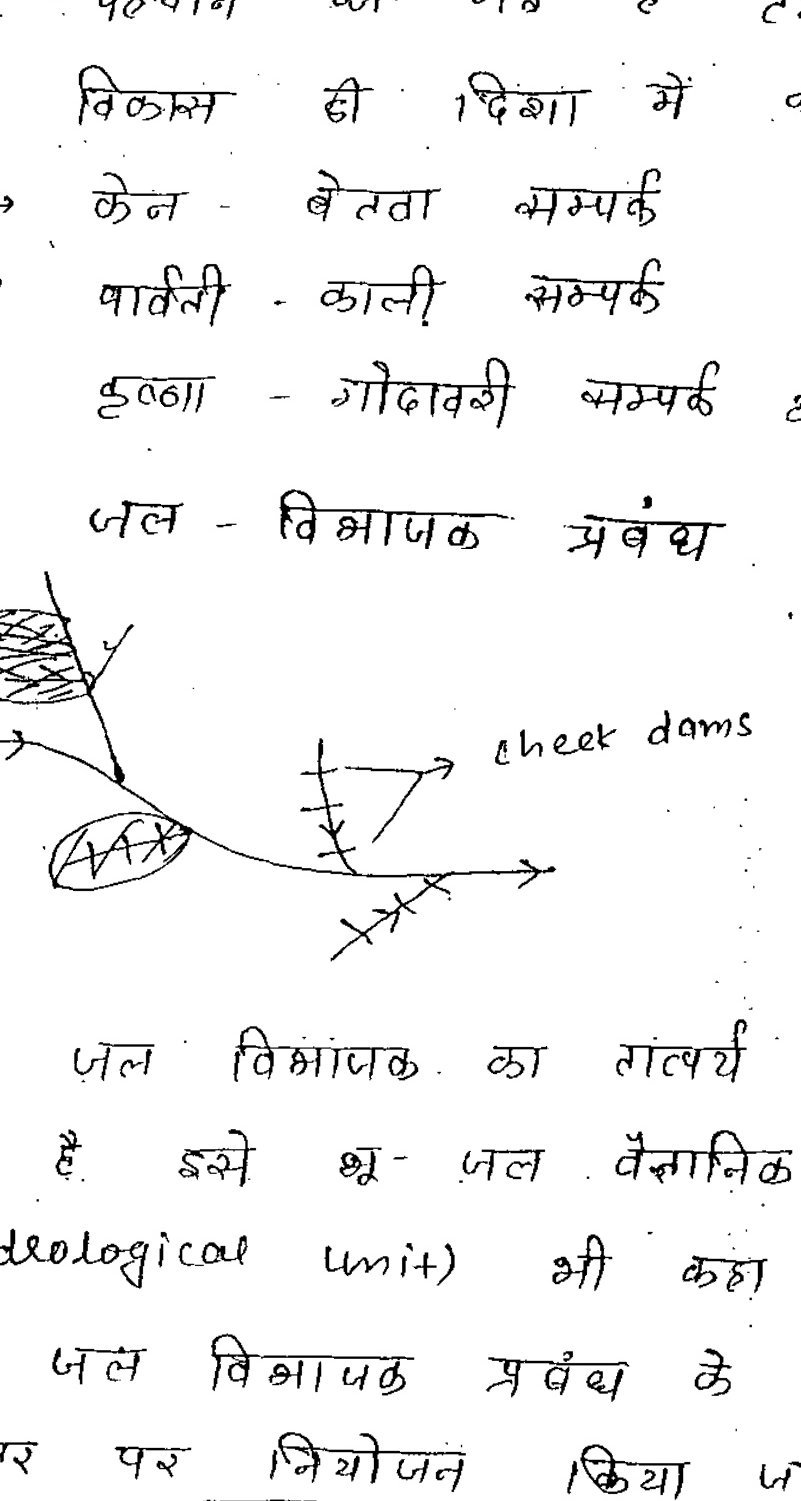 विकास की दिशा में
केन - बेतवा सम्पर्क
पार्वती - काली सम्पर्क
कृष्णा - गोदावरी सम्पर्क
जल - विभाजक प्रबंध
check dams
जल विभाजक का तात्पर्य
है इसे भू - जल वैज्ञानिक
unit) भी कहा
जल विभाजक प्रबंध के
पर नियोजन किया